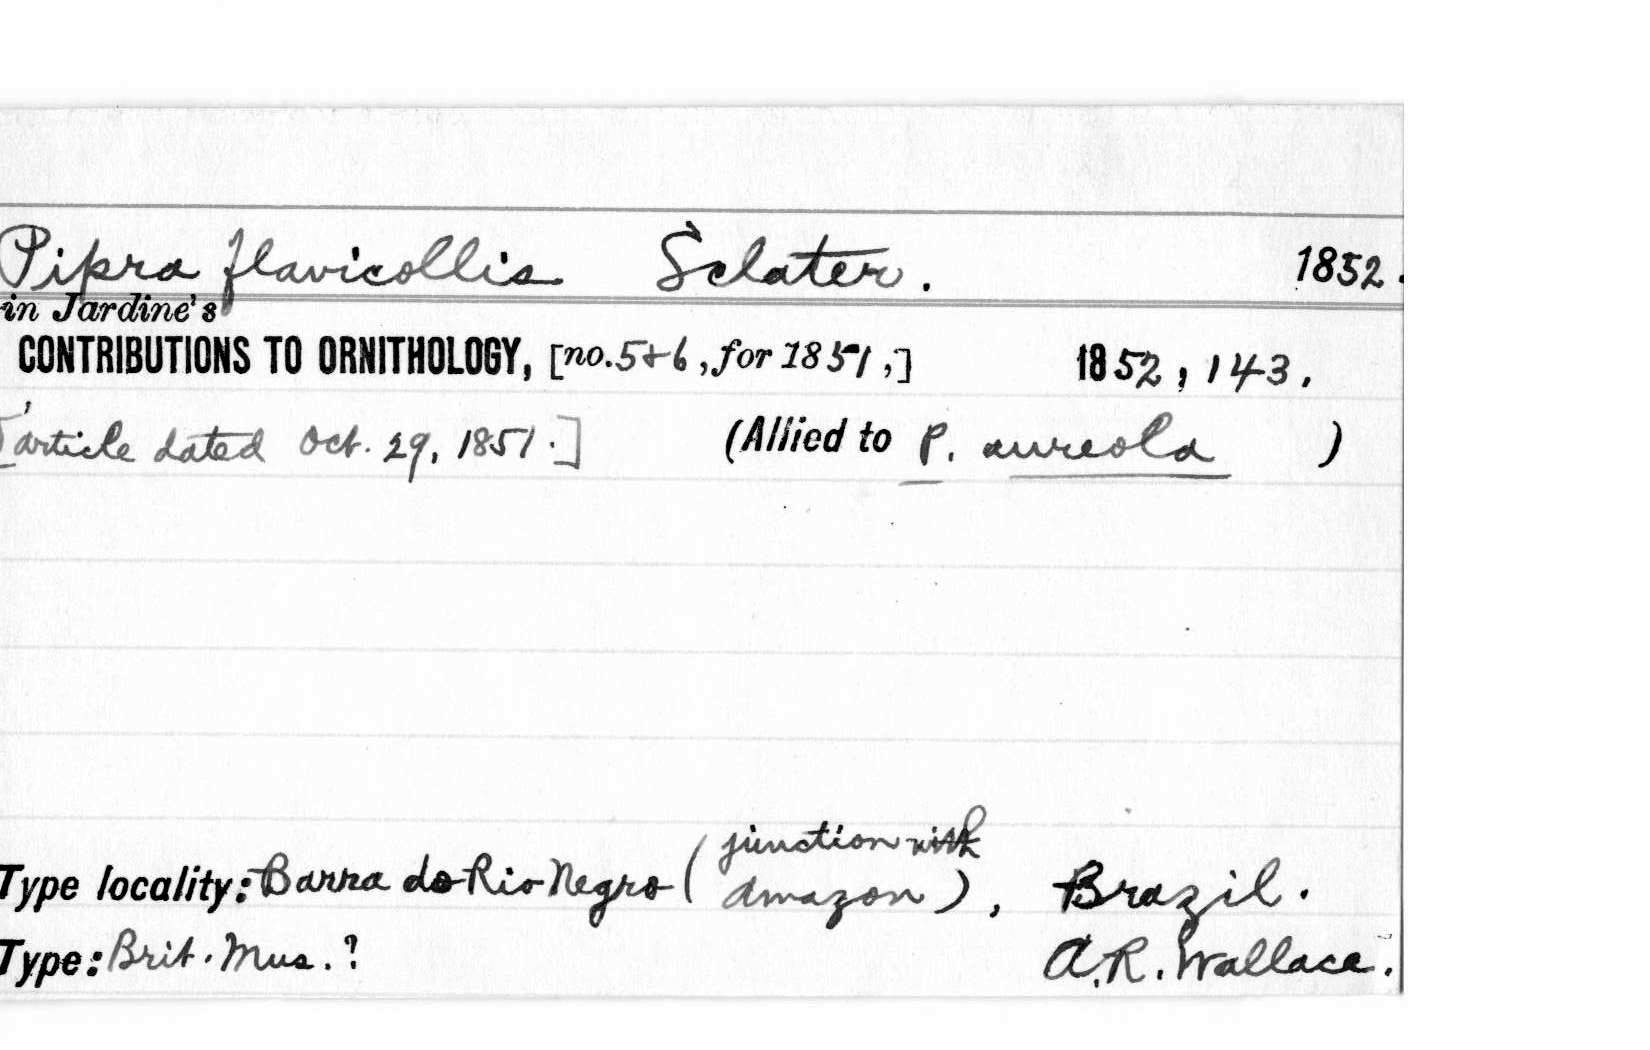 Pipra flavicollis Sclater. 1852.
in Jardine's
CONTRIBUTIONS TO ORNITHOLOGY, [no. 5+6, for 1851,] 1852, 143.
[article dated Oct. 29, 1851.] (Allied to P. aureola )
junction with
Type locality: Barra do Rio Negro ( Amazon ), Brazil.
Type: Brit. Mus. ? A.R. Wallace.